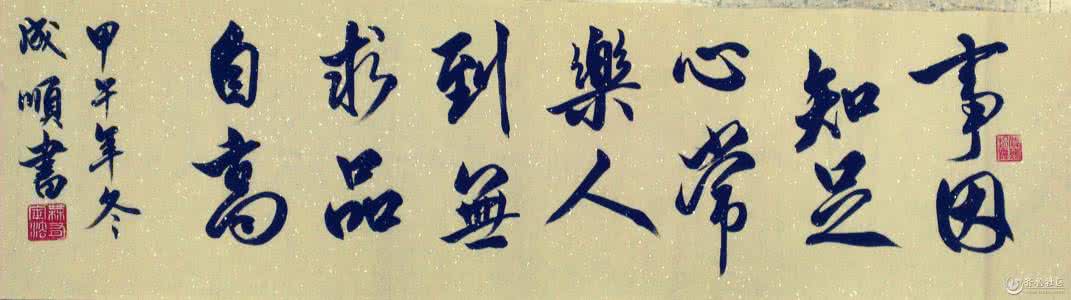 事因
知足
心常
樂人
到無
求品
自高
甲午年冬
成順書